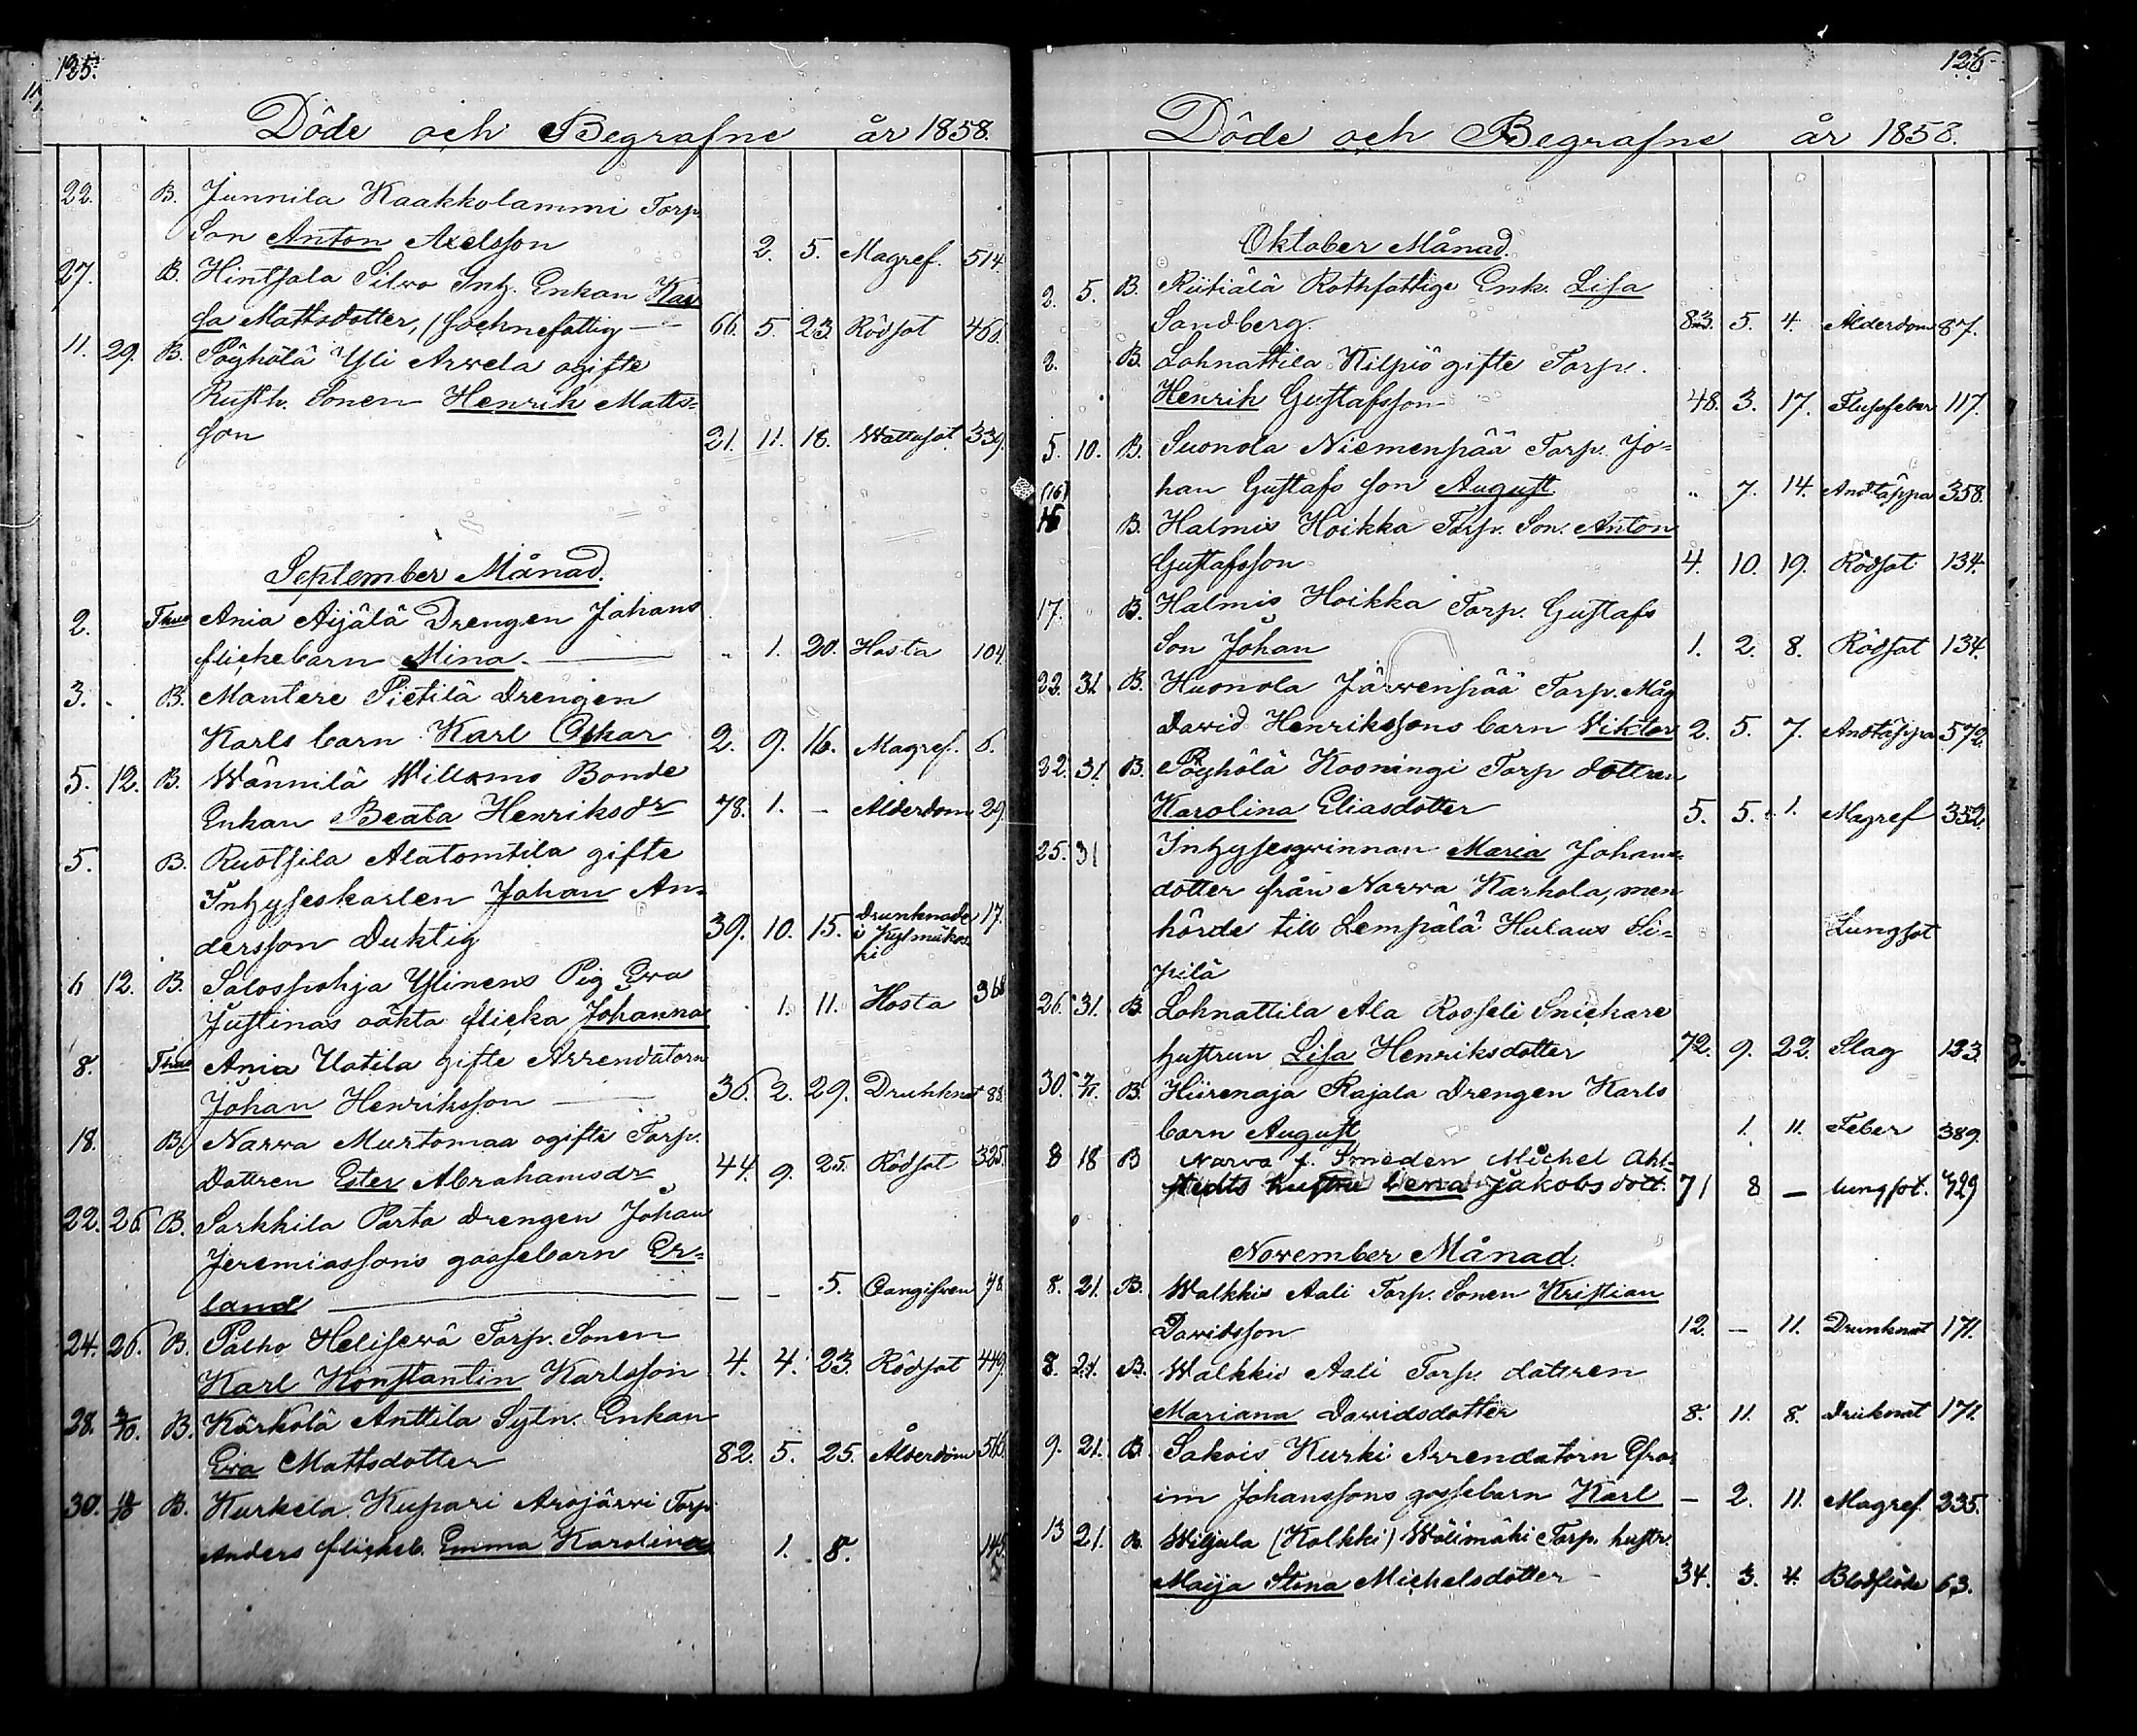 125.
Döde och Begrafne år 1858.
22. B. Junnila Kaakkolammi Torp.
Son Anton Axelsson 2. 5. Magref. 514.
27. B. Hintsala Silvo Inh. Enkan Kai
sa Mattsdotter, (socknefattig — 66. 5 23. Rödsot 460.
11. 29. B. Pöyhölä Yli Arvela ogifte
Rusth. Sonen Henrik Matts=
son 21. 11. 18. Wattusot. 339.
September Månad.
2. Thus Ania Aijälä Drengen Johans
flickebarn Mina. — „ 1. 20. Hosta 104.
3. B. Mantere Pietilä Drengen
Karls barn Karl Oskar 2. 9. 16. Magref. 6.
5. 12. B. Wännilä Willamo Bonde
Enkan Beata Henriksdr 78. 1. — Ålderdom 29.
5. B. Ruotsila Alatomtila gifte
Inhyseskarlen Johan An=
dersson Duktig 39. 10. 15. Drunknade i 17.
6 12. B. Salospohja Ylinens Pig Eva
Justinas oäkta flicka Johanna 1. 11. Hosta 368
8. Thus Ania Uotila gifte Arrendatorn
Johan Henriksson — 36. 2. 29. Drunknat 88.
18. B. Narva Murtomaa ogifte Torp.
Dottren Ester Abrahamsdr 44. 9. 25. Rödsot 325.
22. 26 B. Sarkkila Parta drengen Johan
Jeremiassons gossebarn Er=
land — — — 5. Oangifven 48.
24. 26. B. Palho Heliserä Torp. Sonen
Karl Konstantin Karlsson 4. 4. 23. Rödsot 449.
28. 3/10. B. Kärkölä Anttila Sytn. Enkan
Eva Mattsdotter 82. 5. 25. Ålderdom 566.
30. 10/10 B. Kurkela Kupari Arojärvi Torp.
Anders flickeb. Emma Karolina 1. 8.
126
Döde och Begrafne år 1858.
Oktober Månad.
2. 5. B. Riitiälä Rothfattige Enk. Lisa
Sandberg. 83. 5. 4. Ålderdom 87.
2. B. Lohnattila Kilpiö gifte Torp.
Henrik Gustafsson 48. 3. 17. Flussfeber 117.
5. 10. B. Suonola Niemenpää Torp. Jo=
han Gustafs son August „ 7. 14. Andtäppa 358.
(16)
B. Halmis Hoikka Torp. Son. Anton
Gustafsson 4. 10. 19. Rödsot 134.
17. B. Halmis Hoikka Torp. Gustafs
Son Johan 1. 2. 8. Rödsot 134.
22. 31. B. Huonola Järvenpää Torp. Måg
David Henrikssons barn Viktor 2. 5. 7. Andtäppa 572.
22. 31. B. Pöyhölä Kooningi Torp dottren
Karolina Eliasdotter 5. 5. 1. Magref 352.
25. 31 Inhysesqvinnan Maria Johans=
dotter från Narva Karhola, men
hörde till Lempälä Hulaus Si= Lungsot
pilä
26. 31. B. Lohnattila Ala Rosseli Snickare
hustrun Lisa Henriksdotter 72. 9. 22. Slag 133.
30. 7/11. B. Hiirenaja Rajala Drengen Karls
barn August 1. 11. Feber 389.
8 18 B Narva f. Smeden Michel Ahl=
stedts hustru Lena Jakobs dott. 71 8 — lungsot. 329
November Månad.
8. 21. B. Walkkis Aali Torp. Sonen Kristian
Davidsson 12. — 11. Drunknat 171.
8. 21. B. Walkkis Aali Torp. dottren
Mariana Davidsdotter 8. 11. 8. Druknat 171.
9. 21. B. Sakois Kurki Arrendatorn Efra=
im Johanssons gossebarn Karl — 2. 11. Magref. 235.
13 21. B. Wiljula (Kolkki) Wälimäki Torp. hustr.
Maija Stina Michelsdotter 34. 3. 4. Blodflöde 63.